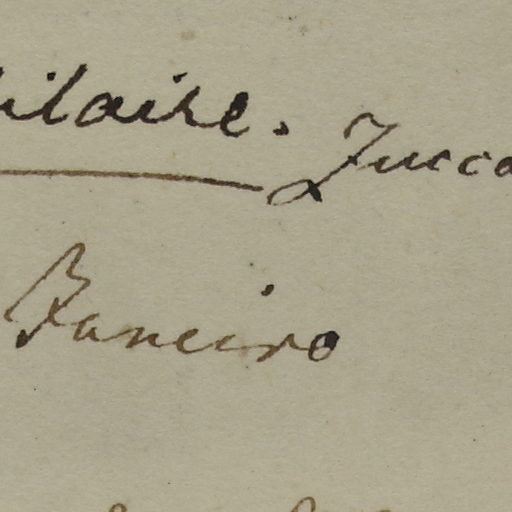 ilaire. Zucca
Janeiro